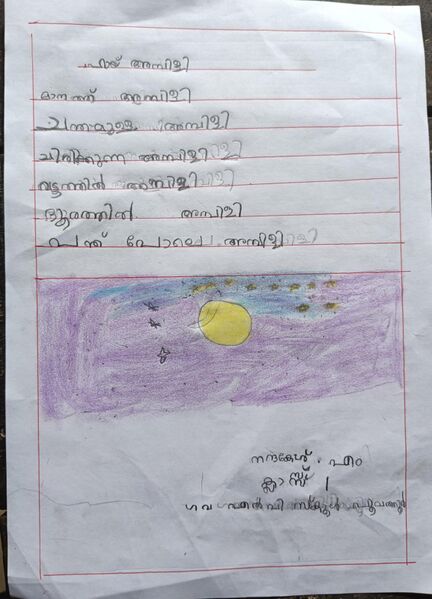 ഹായ് അമ്പിളി
മാനത്ത് അമ്പിളി
ചന്തമുള്ള അമ്പിളി
ചിരിക്കുന്ന അമ്പിളി
വട്ടത്തിൽ അമ്പിളി
ദൂരത്തിൽ അമ്പിളി
പന്ത് പോലെ അമ്പിളി
നന്ദകേശ്. എം
ക്ലാസ്സ് 1
ഗവ എൽ പി സ്കൂൾ